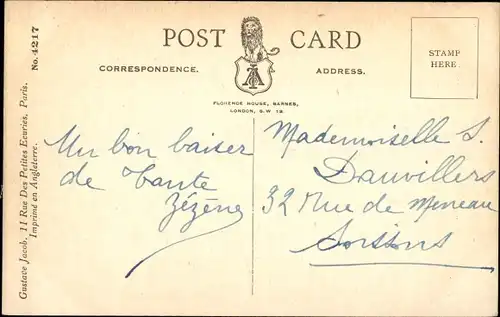 POST CARD
CORRESPONDENCE.
ADDRESS.
STAMP
HERE.
FLORENCE HOUSE, BARNES,
LONDON, S.W 13.
Un bon baiser
de tante
Zézène
Mademoiselle S.
Dauvillers
32 Rue de Meneau
Soissons
No. 4217
Gustave Jacob, 11 Rue Des Petites Ecuries, Paris.
Imprimé en Angleterre.